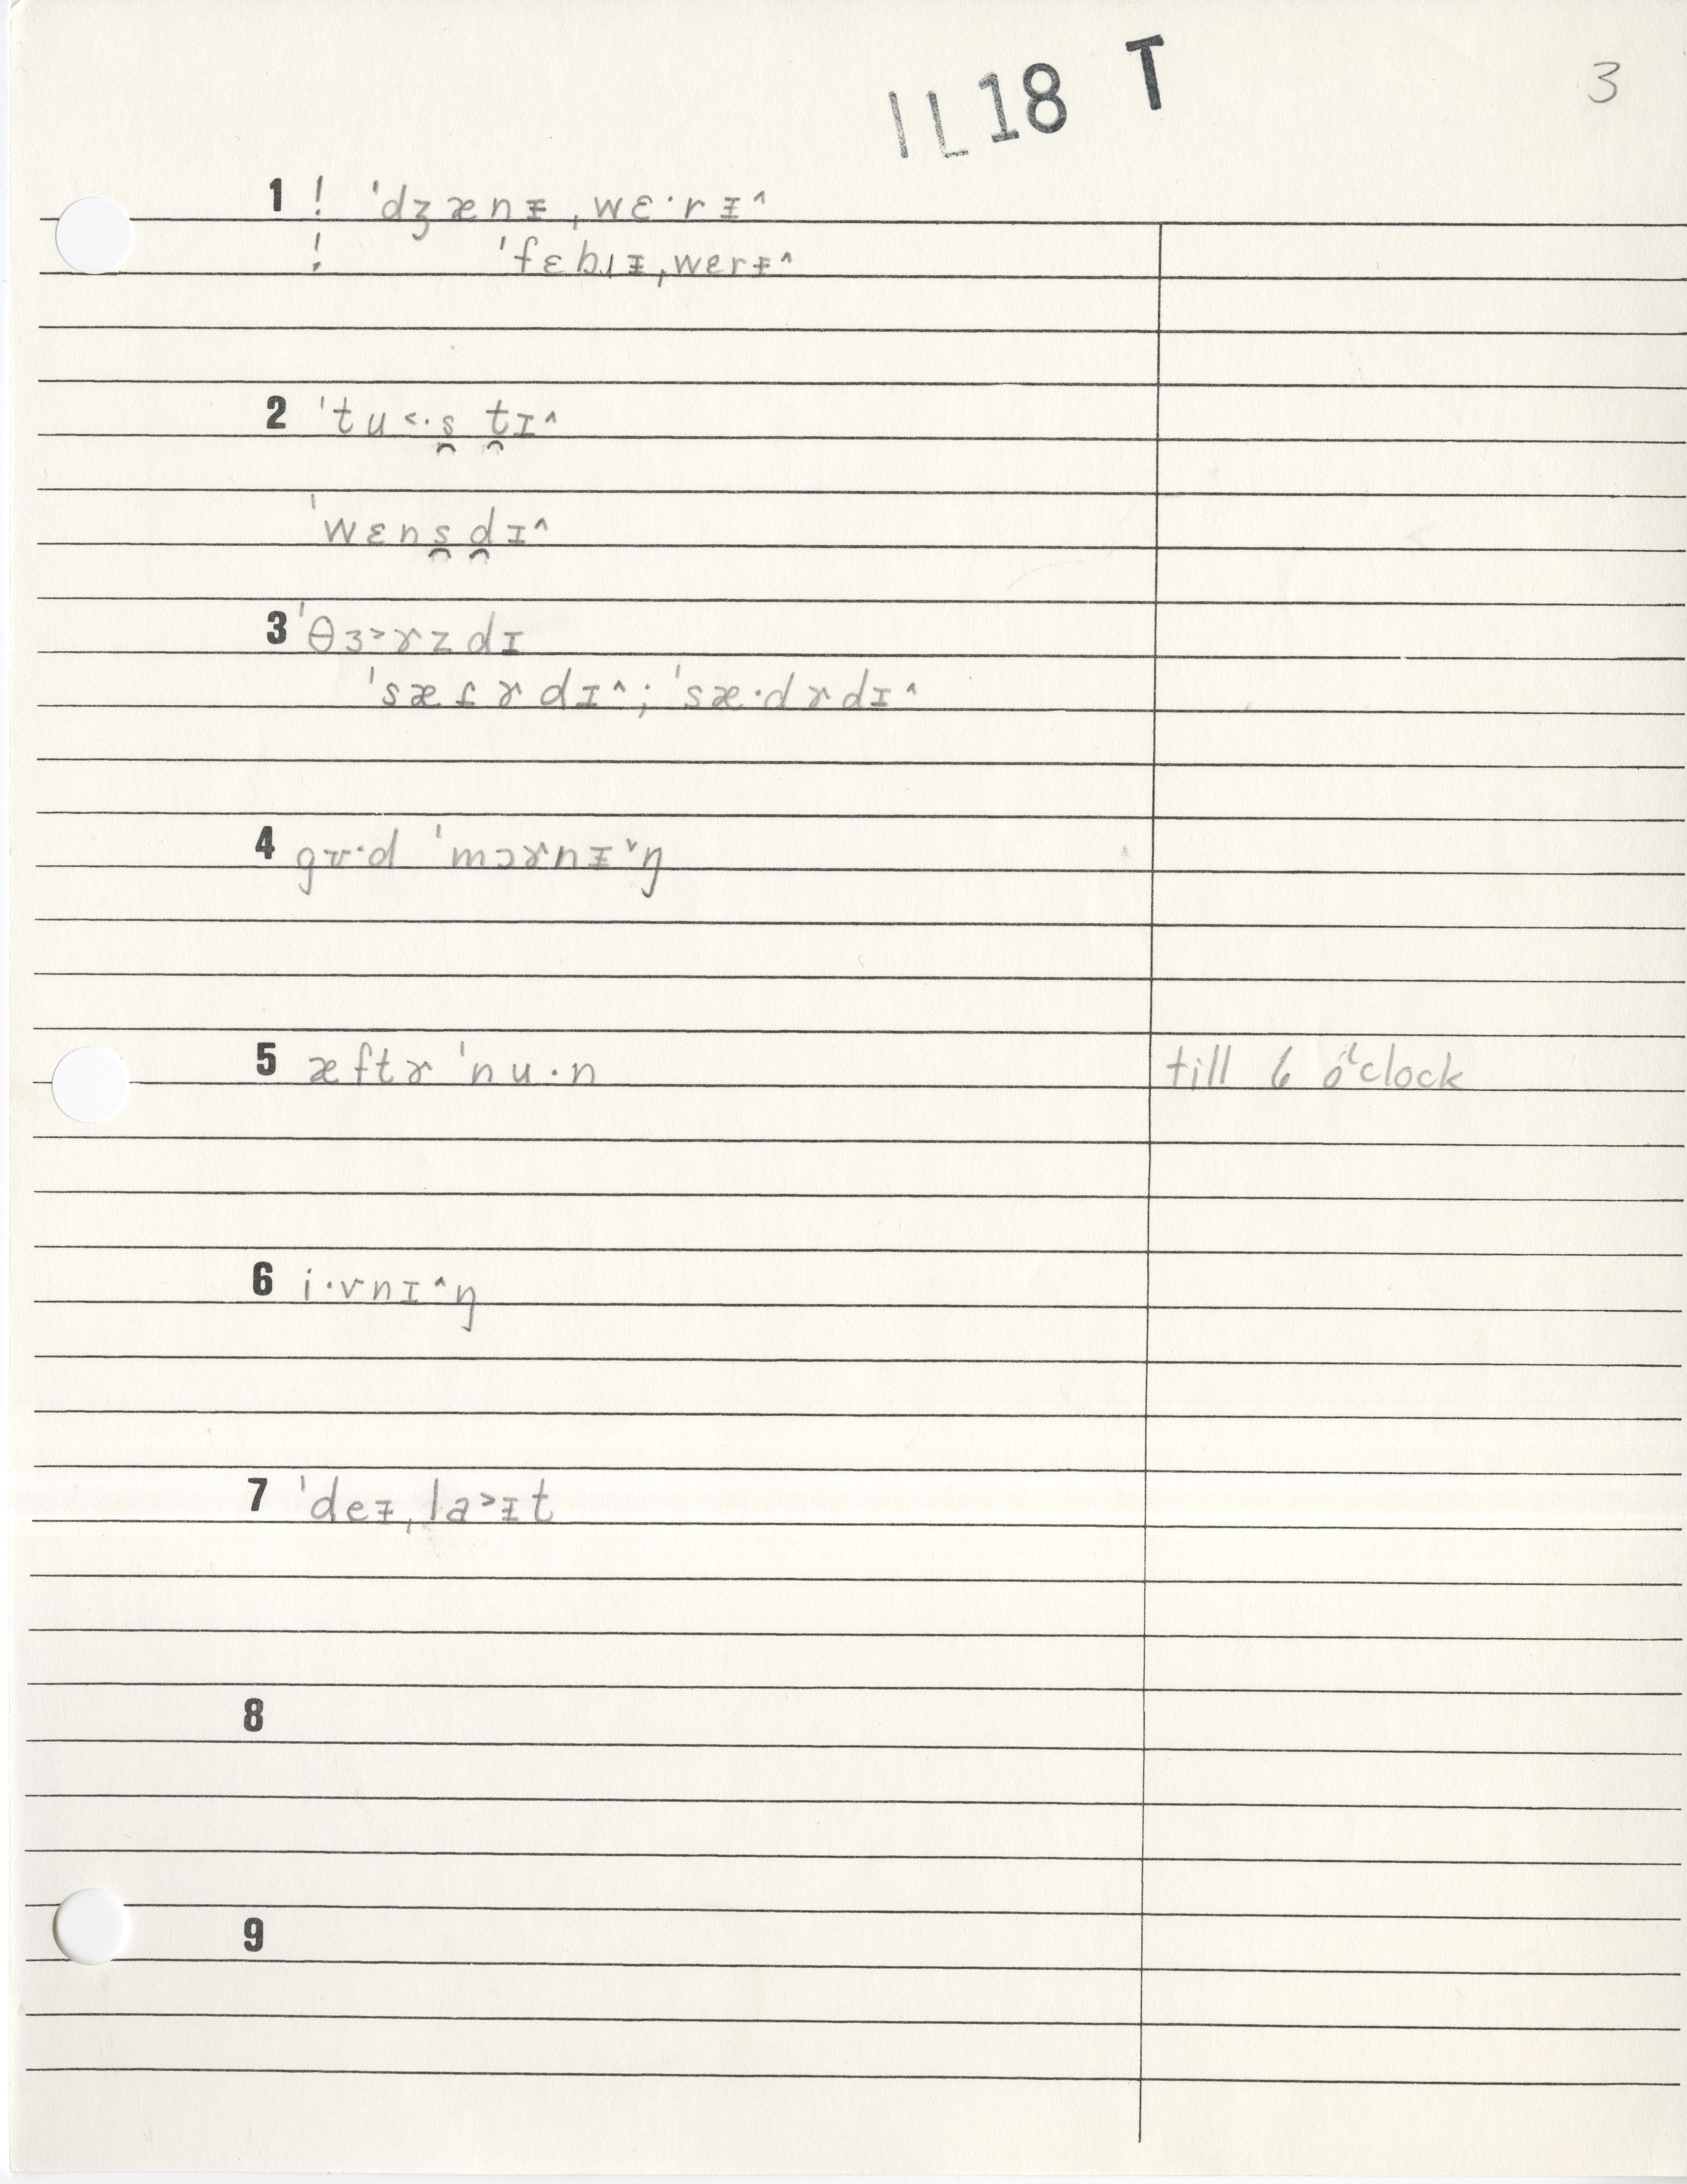 IL18 T
3
1 ! ˈdʒænᵻˌwɛ·rᵻ^
! ˈfɛbɹᵻˌwerᵻ^
2 ˈtu<·s̯ t̯ɪ^
ˈwɛns̯d̯ɪ^
3 ˈθɜ˃ɤzdɪ
ˈsæɾɤdɪ^; ˈsæ·dɤdɪ^
4 gʊ·d ˈmɔɤnᵻˇŋ
5 æftɤ ˈnu·n till 6 o'clock
6 i·vnɪ^ŋ
7 ˈdeᵻˌla˃ᵻt
8
9